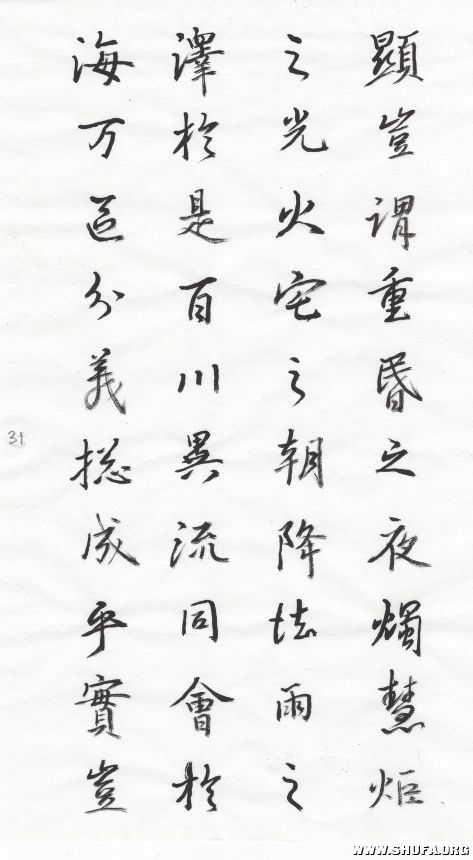 顯豈謂重昏之夜燭慧炬
之光火宅之朝降法雨之
澤於是百川異流同會於
海万區分義揔成乎實豈
31
WWW.SHUFA.ORG